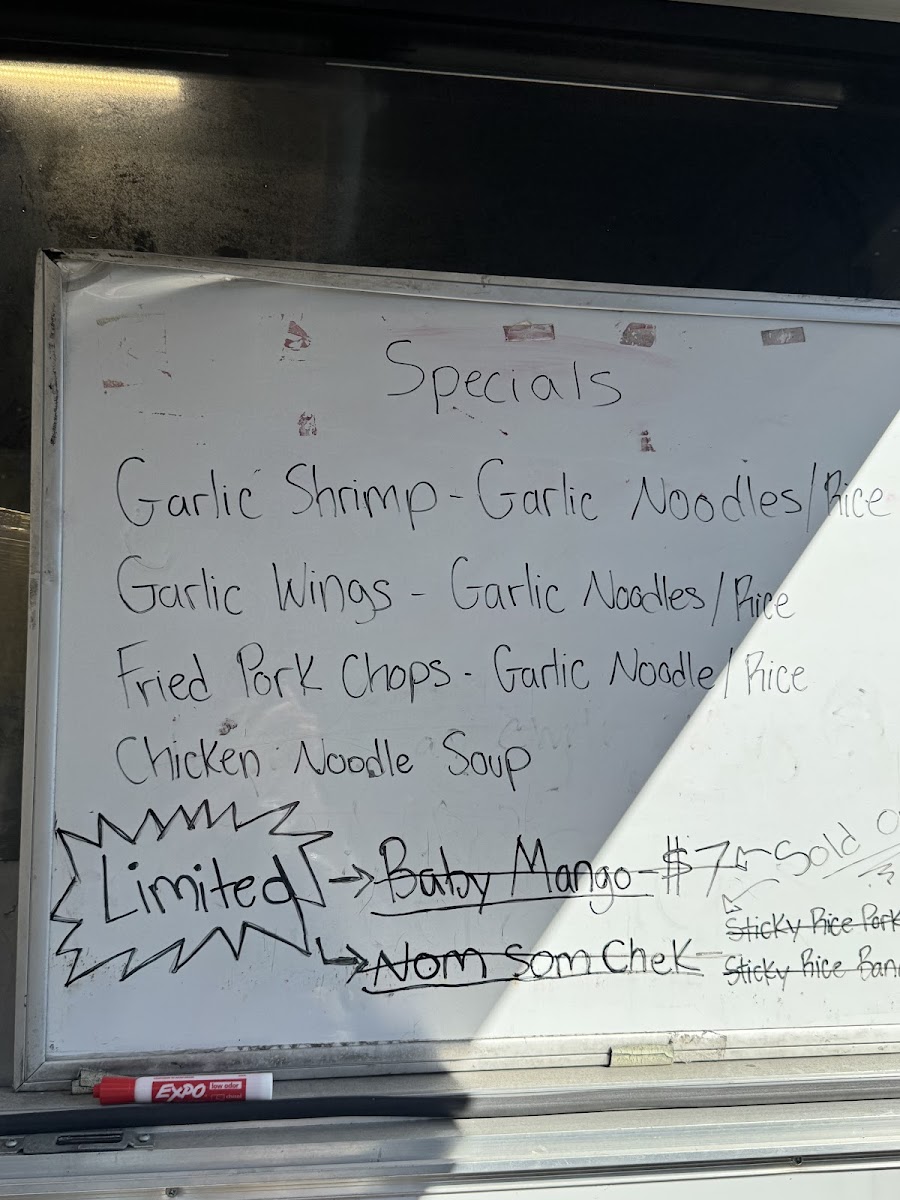 Specials
Garlic Shrimp - Garlic Noodles/Rice
Garlic Wings - Garlic Noodles/Rice
Fried Pork Chops - Garlic Noodle/Rice
Chicken Noodle Soup
Limited → Baby Mango - $7 ← Sold
→ Nom Som Chek - Sticky Rice Pork
Sticky Rice Ban
EXPO low odor